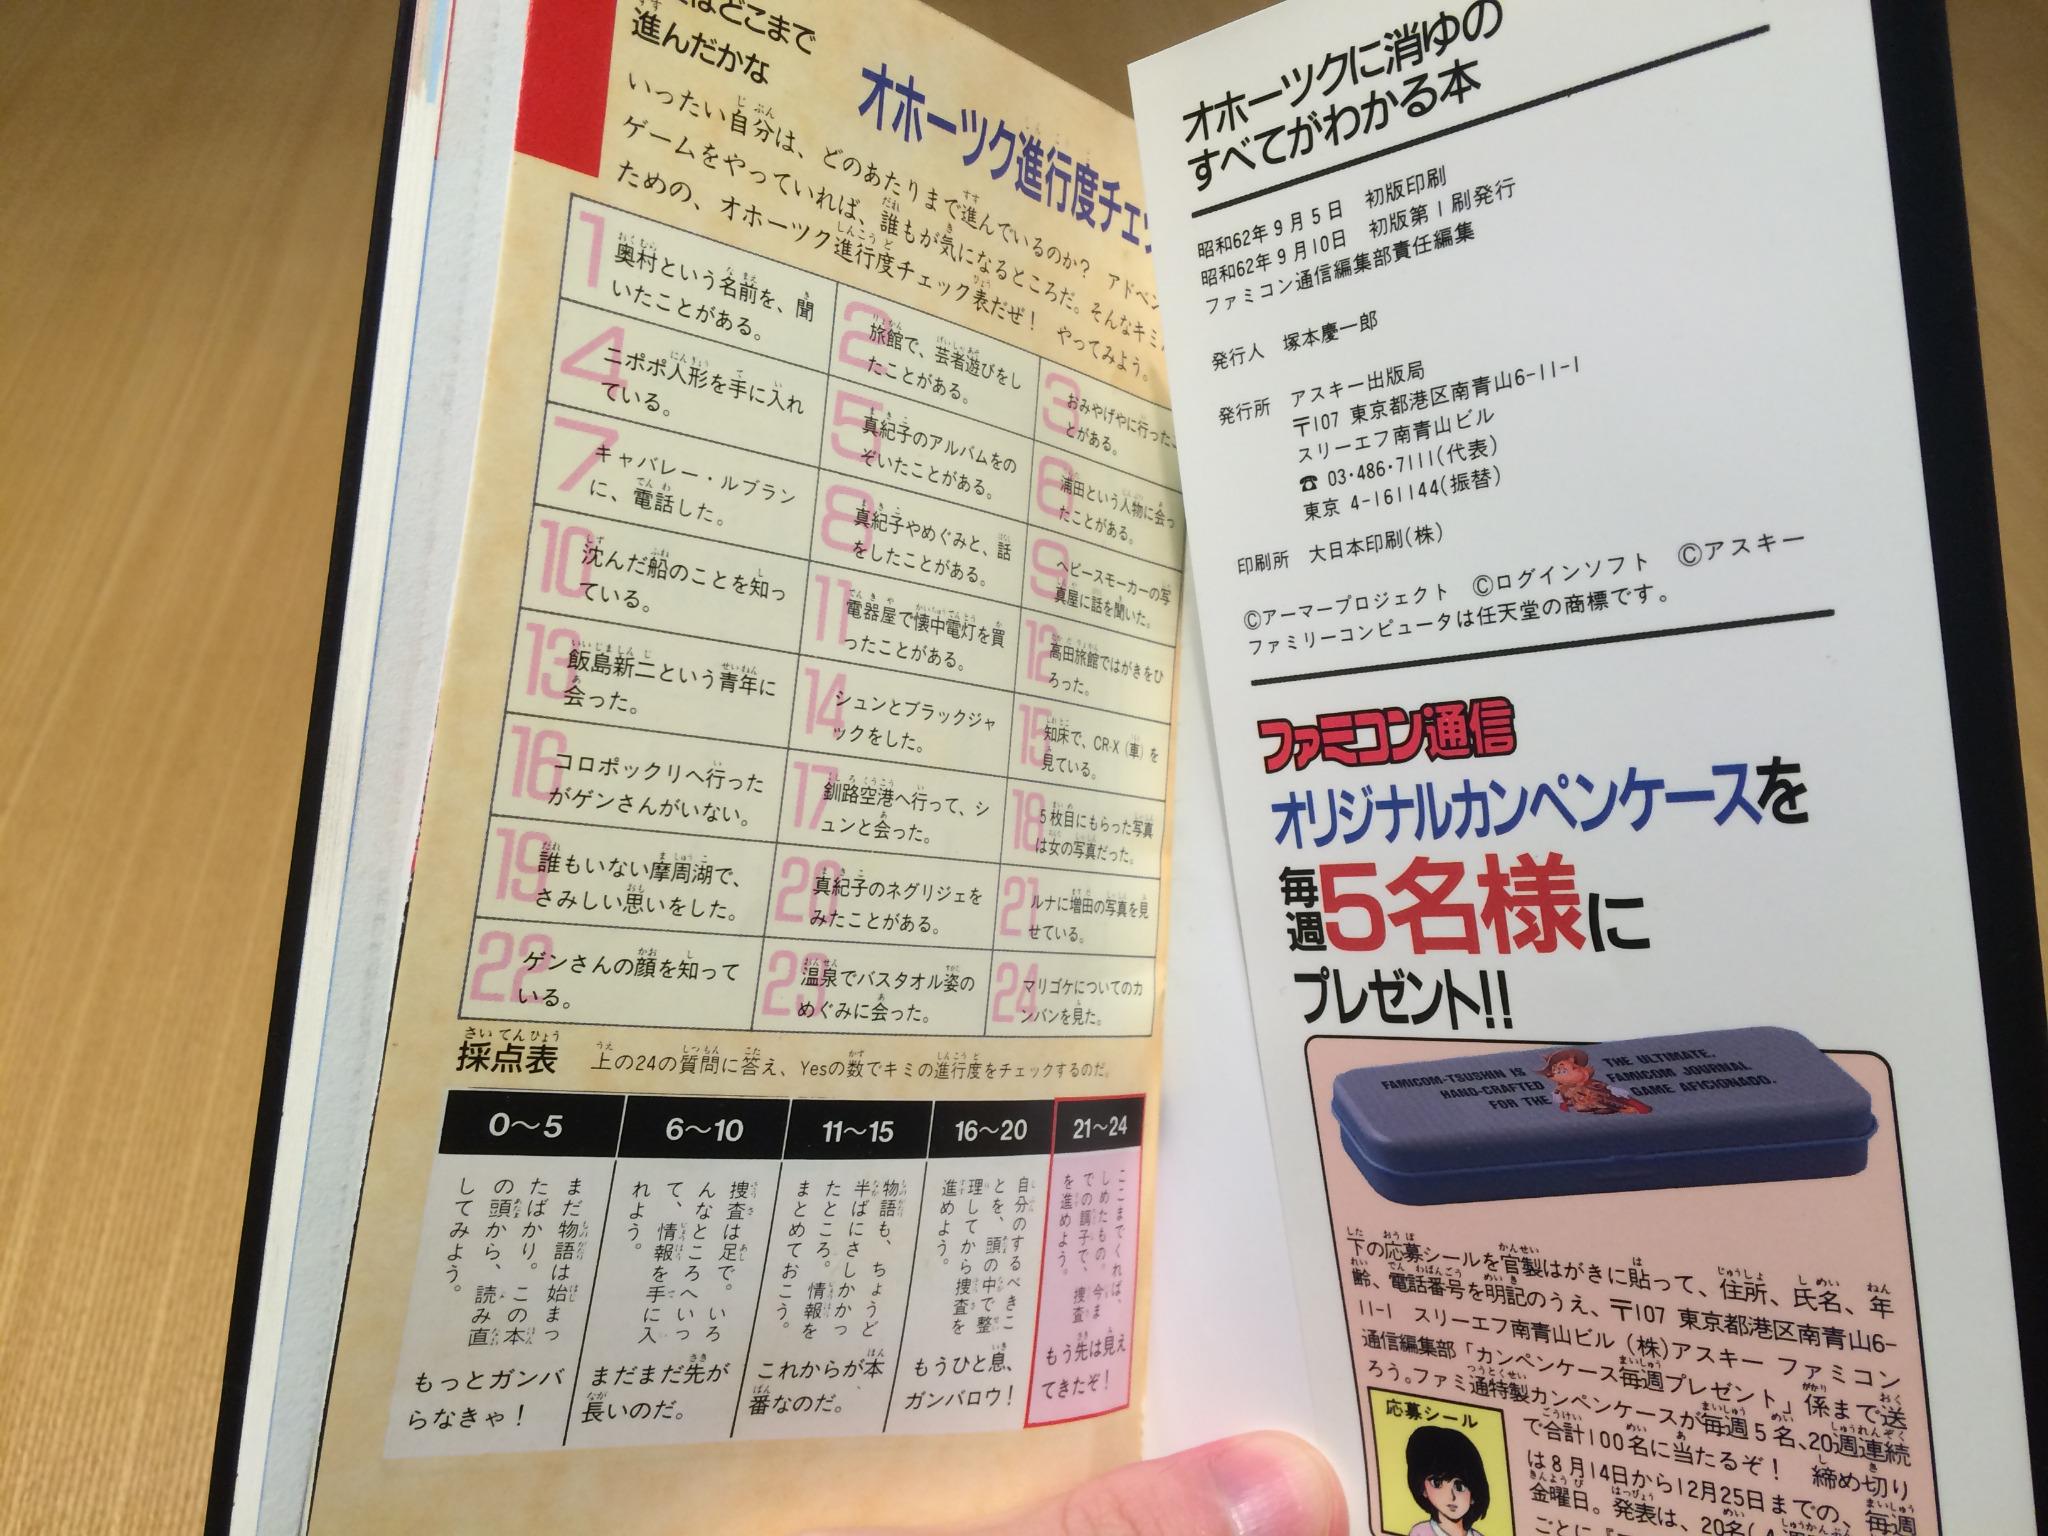 はどこまで
進んだかな
オホーツク進行度チェッ
いったい自分は、どのあたりまで進んでいるのか？ アドベン
ゲームをやっていれば、誰もが気になるところだ。そんなキミ
ための、オホーツク進行度チェック表だぜ！ やってみよう。
1 奥村という名前を、聞
いたことがある。
2 旅館で、芸者遊びをし
たことがある。
3 おみやげやに行ったこ
とがある。
4 ニポポ人形を手に入れ
ている。
5 真紀子のアルバムをの
ぞいたことがある。
6 浦田という人物に会っ
たことがある。
7 キャバレー・ルブラン
に、電話した。
8 真紀子やめぐみと、話
をしたことがある。
9 ヘビースモーカーの写
真屋に話を聞いた。
10 沈んだ船のことを知っ
ている。
11 電器屋で懐中電灯を買
ったことがある。
12 高田旅館ではがきをひ
ろった。
13 飯島新二という青年に
会った。
14 シュンとブラックジャ
ックをした。
15 知床で、CR-X（車）を
見ている。
16 コロポックリへ行った
がゲンさんがいない。
17 釧路空港へ行って、シ
ュンと会った。
18 5枚目にもらった写真
は女の写真だった。
19 誰もいない摩周湖で、
さみしい思いをした。
20 真紀子のネグリジェを
みたことがある。
21 ルナに増田の写真を見
せている。
22 ゲンさんの顔を知って
いる。
23 温泉でバスタオル姿の
めぐみに会った。
24 マリゴケについてのカ
ンバンを見た。
採点表 上の24の質問に答え、Yesの数でキミの進行度をチェックするのだ。
0～5
まだ物語は始まっ
たばかり。この本
の頭から、読み直
してみよう。
もっとガンバ
らなきゃ！
6～10
捜査は足で。いろ
んなところへいっ
て、情報を手に入
れよう。
まだまだ先が
長いのだ。
11～15
物語も、ちょうど
半ばにさしかかっ
たところ。情報を
まとめておこう。
これからが本
番なのだ。
16～20
自分のするべきこ
とを、頭の中で整
理してから捜査を
進めよう。
もうひと息、
ガンバロウ！
21～24
ここまでくれば、
しめたもの。今ま
での調子で、捜査
を進めよう。
もう先は見え
てきたぞ！
オホーツクに消ゆの
すべてがわかる本
昭和62年9月5日 初版印刷
昭和62年9月10日 初版第1刷発行
ファミコン通信編集部責任編集
発行人 塚本慶一郎
発行所 アスキー出版局
〒107 東京都港区南青山6-11-1
スリーエフ南青山ビル
☎ 03・486・7111(代表)
東京 4-161144(振替)
印刷所 大日本印刷(株)
©アーマープロジェクト ©ログインソフト ©アスキー
ファミリーコンピュータは任天堂の商標です。
ファミコン通信
オリジナルカンペンケースを
毎週5名様に
プレゼント!!
FAMICOM-TSUSHIN IS THE ULTIMATE,
HAND-CRAFTED FAMICOM JOURNAL
FOR THE GAME AFICIONADO.
下の応募シールを官製はがきに貼って、住所、氏名、年
齢、電話番号を明記のうえ、〒107 東京都港区南青山6-
11-1 スリーエフ南青山ビル (株)アスキー ファミコン
通信編集部「カンペンケース毎週プレゼント」係まで送
ろう。ファミ通特製カンペンケースが毎週5名、20週連続
で合計100名に当たるぞ！ 締め切り
は8月14日から12月25日までの、毎週
金曜日。発表は、20名(
ごとに『
応募シール